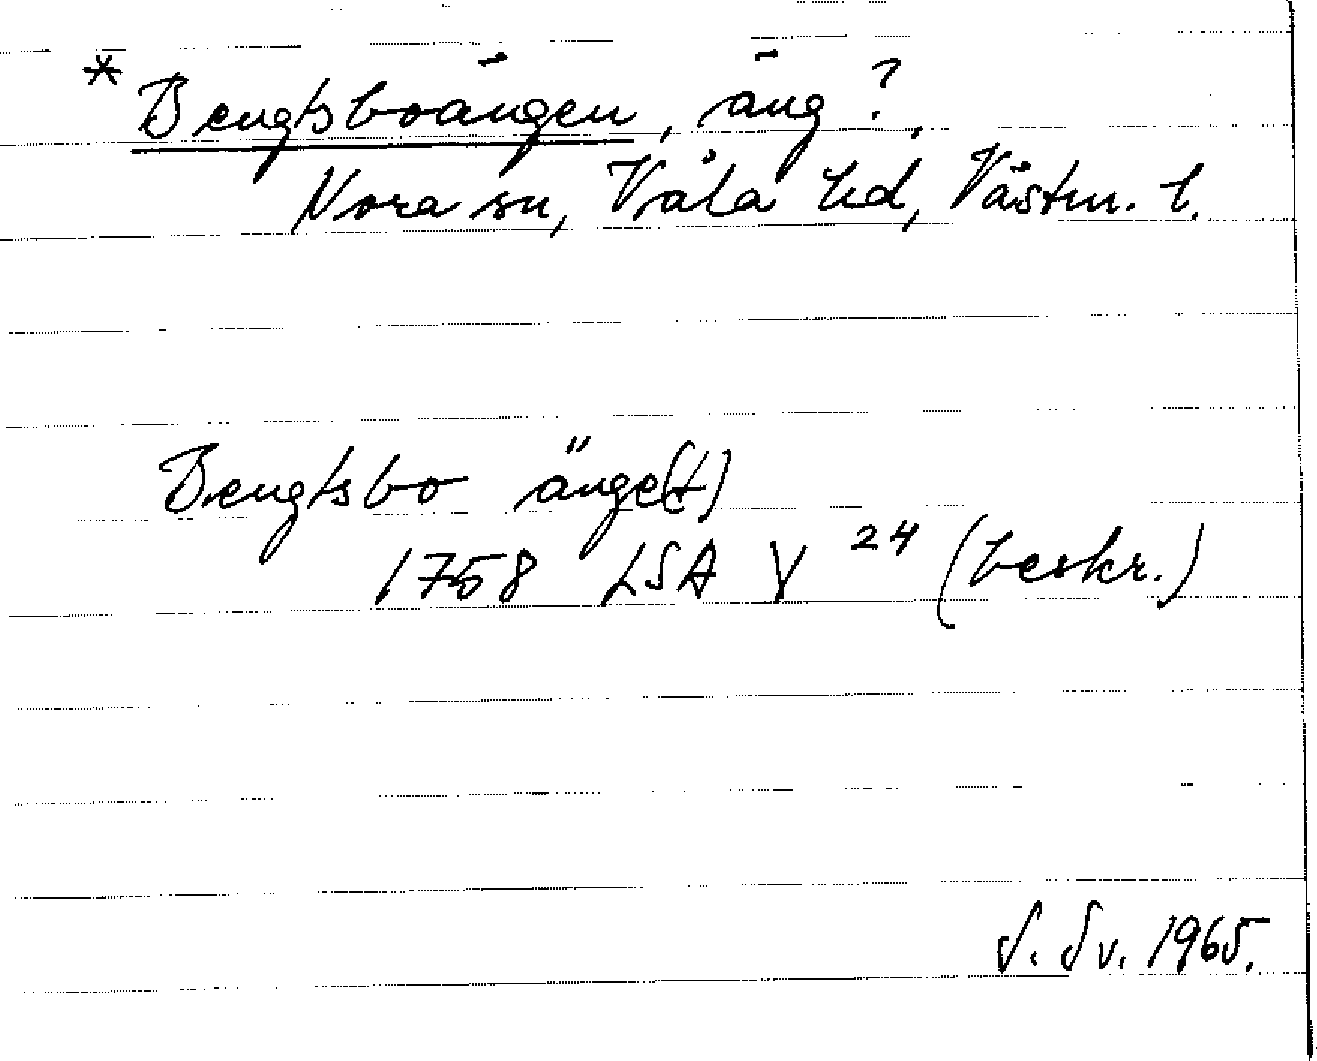 * Bengtsboängen, äng?,
Nora sn, Våla hd, Västm. l.
Bengtsbo änge(t)
1758 LSA V 24 (beskr.)
S. Sv. 1965.